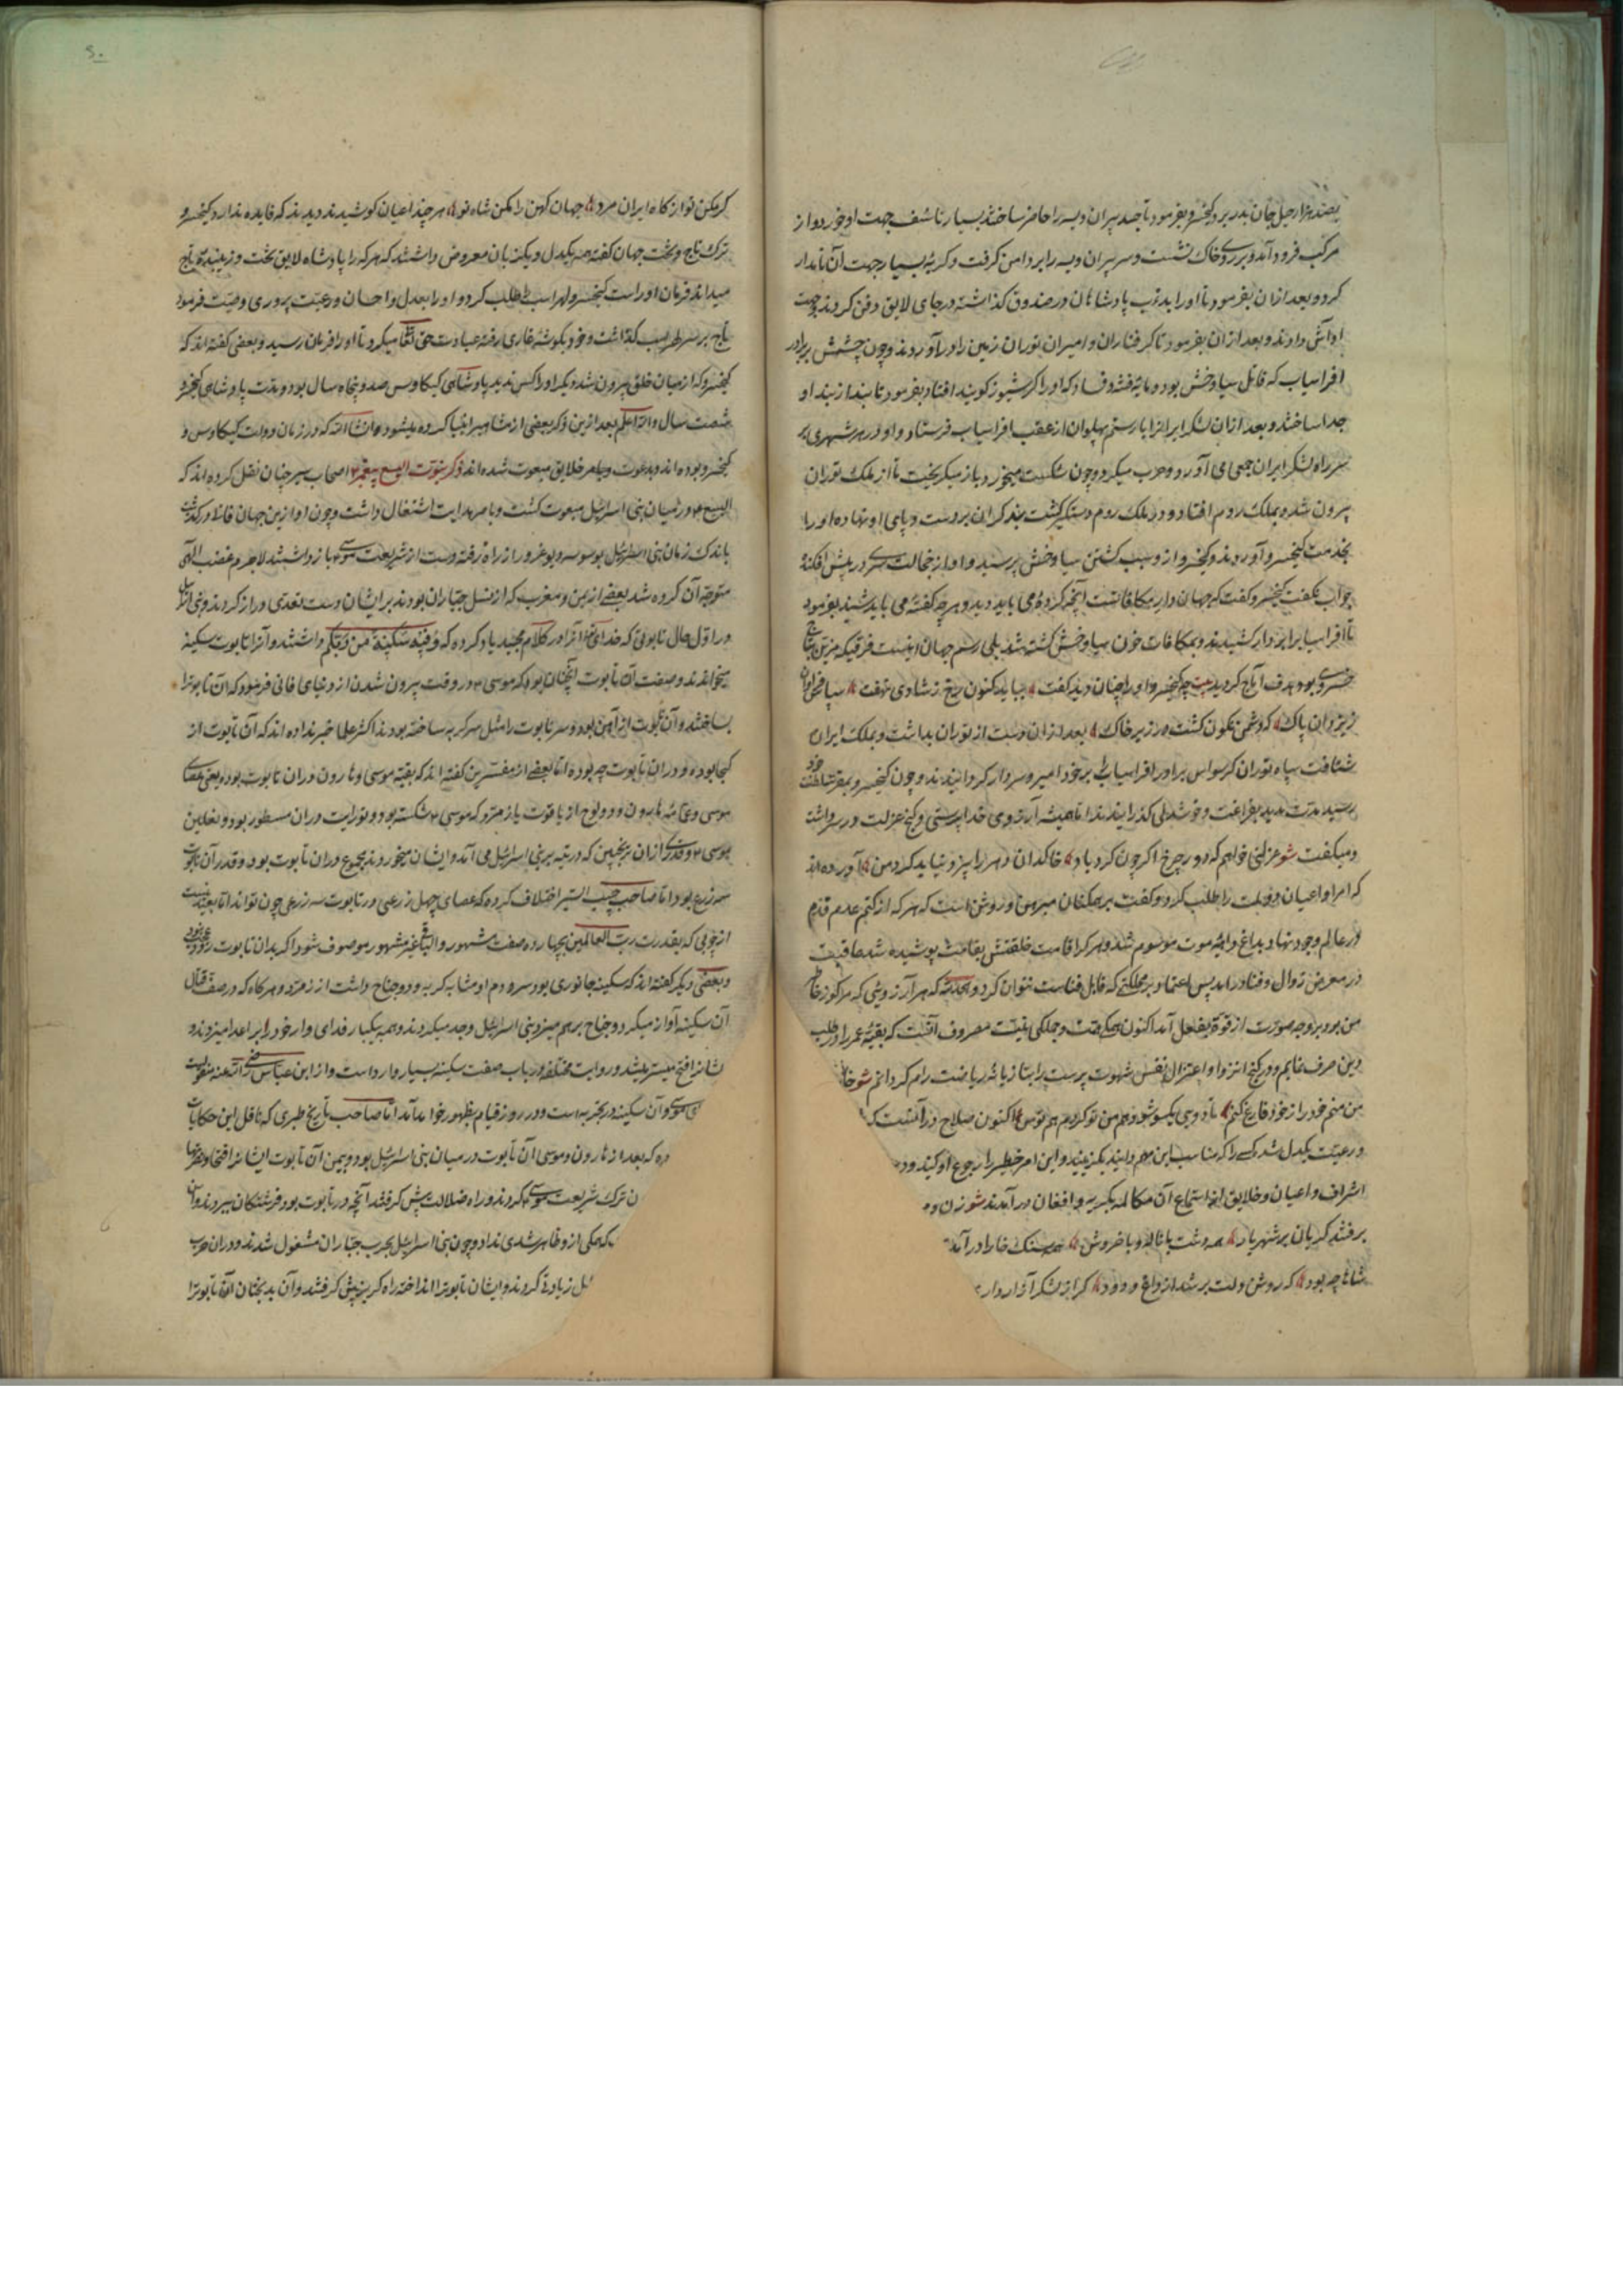 بصد هزار حیل جان بدر برد و کیخسرو بفرمود تا جسد پیران ویسه را حاضر ساختند بسیار تاسف جهت او خورد و از
مرکب فرود آمد و بر روی خاک نشست و سر پیران ویسه را بر دامن گرفت و گریه بسیار جهت آن نامدار
کرد و بعد از ان بفرمود تا او را بدترتیب پادشاهان در صندوق گذاشته در جای لایق دفن کردند و جهت
او آش دادند و بعد از ان بفرمود تا گرفتاران و امیران توران زمین را در آوردند و چون چشمش بر برادر
افراسیاب که قاتل سیاوخش بود و مایه فتنه و فساد که او را کرشیوز گویند افتاد بفرمود تا بند از بند او
جدا ساختند و بعد از ان لشکر ایران را با رستم پهلوان از عقب افراسیاب فرستاد و او در هر شهری بر
سر راه لشکر ایران جمعی می آورد و حرب میکرد و چون شکست میخورد باز میگریخت تا از ملک توران
بیرون شده بملک روم افتاد و در ملک روم دستگیر گشت بند گران بر دست و پای او نهاده او را
بخدمت کیخسرو آوردند و کیخسرو از و سبب کشتن سیاوخش پرسید و او از خجالت سر در پیش افکنده
جواب نگفت کیخسرو گفت که جهان دار مکافاتست آنچه کرده می باید دید و هر چه گفته می باید شنید بفرمود
تا افراسیاب را بر دار کشیدند و بمکافات خون سیاوخش کشته شد بلی رسم جهان اینست فرقیکه مزین بتاج
خسروی بود هدف آماج گردید بیت چو کیخسرو او را چنان دید گفت بباید کنون رخ ز شادی نهفت سپاس فراوان
ز یزدان پاک که دشمن نگون گشت در زیر خاک بعد از ان دست از توران بداشت و بملک ایران
شتافت سپاه توران کرسواس برادر افراسیاب را بر خود امیر و سردار گردانیدند و چون کیخسرو بمقر سلطنت خود
رسید مدت مدید بفراغت و خوشدلی گذرانیدند اما همیشه آرزوی خدا پرستی و کنج عزلت در سر داشت
و میگفت شو عزلتی خواهم که دور چرخ اگر چون گرد باد خاکدان دهر را بیزد نیابد گرد من آورده اند
که امرا و اعیان دولت را طلب کرد و گفت بر همکنان مبرهن و روشن است که هر که از کتم عدم قدم
در عالم وجود نهاد بداغ دایمه موت موسوم شد و هر که را قامت خلقتش بقامت پوشیده شد عاقبت
در معرض زوال و فنا در آمد پس اعتماد بر مملکتی که قابل فناست نتوان کرد و الحمدلله که هر آرزویی که مرکوز خاطر
من بود بر وجه صورت از قوة بفعل آمد اکنون همگی همت و جملگی نیت مصروف آنست که بقیه عمر را در طلب
دین صرف نمایم و در کنج انزوا و اعتزال نفس شهوت پرست را بتازیانه ریاضت رام گردانم شو
من منم خود را ز خود فارغ کنم تا دویی یکسو شود هم من تو گردم هم تو من اکنون صلاح در آنست که
و رعیت یکدل شده کسی را که مناسب این مهم دانید بگزینید و این امر خطیر را رجوع او کنید
اشراف و اعیان و خلایق از استماع آن مکالمه بگریه و افغان در آمدند شو زن و
برفتند گریان بر شهریار همه دشت با ناله و با خروش همه سنگ خارا در آمد
شاها چه بود که روشن دلت بر شد از داغ و دود گر از لشکر آزار دار
گر مکن تو از گاه ایران مرد جهان کهن را مکن شاه نو هر چند اعیان کوشیدند دیدند که فایده ندارد و کیخسرو
ترک تاج و تخت جهان گفته همه یکدل و یکزبان معروض داشتند که هر که را پادشاه لایق تخت و زیبنده تاج
میداند فرمان او راست کیخسرو لهراسب را طلب کرد و او را بعدل و احسان و رعیت پروری وصیت فرمود
تاج بر سر لهراسب گذاشت و خود بگوشه غاری رفته عبادت حق تعالی میکرد تا او را فرمان رسید و بعضی گفته اند که
کیخسرو که از میان خلق بیرون شد دیگر او را کس ندید پادشاهی کیکاوس صد و پنجاه سال بود و مدت پادشاهی کیخسرو
شصت سال والله اعلم بعد ازین ذکر بعضی از مشاهیر انبیا کرده میشود انشاالله که در زمان دولت کیکاوس و
کیخسرو بوده اند و بدعوت و بامر خلایق مبعوث شده اند ذکر نبوت الیسع پیغمبر اصحاب سیر چنان نقل کرده اند که
الیسع در میان بنی اسرائیل مبعوث گشت و بامر هدایت اشتغال داشت و چون او ازین جهان فانی در گذشت
باندک زمان بنی اسرائیل بوسوسه دیو غرور از راه رفته دست از شریعت موسی باز داشتند لاجرم غضب الهی
متوجه آن گروه شد بعضی از یمن و مغرب که از نسل جباران بودند بر ایشان دست تعدی دراز کردند و بنی اسرائیل
در اول حال تابوتی که خدای تعالی آنرا در کلام مجید یاد کرده که فیه سکینة من ربکم داشتند و آنرا تابوت سکینه
میخواندند و صفت آن تابوت آنچنان بود که موسی در وقت بیرون شدن از دنیای فانی فرمود که آن تابوت را
بساختند و آن تابوت از آهن بود و سر تابوت را مثل سر گربه ساخته بودند اکثر علما خبر نداده اند که آن تابوت از
کجا بوده و در آن تابوت چه بوده اما بعضی از مفسرین گفته اند که بقیه موسی و هارون در ان تابوت بوده یعنی عصای
موسی و عمامه هارون و دو لوح از یاقوت یا زمرد که موسی شکسته بود و تورایت در ان مسطور بود و نعلین
موسی و قدری از ان ترنجبین که در تیه بر بنی اسرائیل می آمد و ایشان میخوردند مجموع در ان تابوت بود و قدر آن تابوت
سه زرع بود اما صاحب حبیب السیر اختلاف کرده که عصای چهل زرعی در تابوت سه زرعی چون تواند اما بعید نیست
از چوبی که بقدرت رب العالمین بچهارده صفت مشهور و البته غیر مشهور موصوف شود اگر بدان تابوت رود
و بعضی دیگر گفته اند که سکینه جانوری بود سر و دم او مشابه گربه و دو جناح داشت از زمرد و هر گاه که در صف قتال
آن سکینه آواز میکرد و جناح بر هم میزد بنی اسرائیل وجد میکردند و همه بیکبار فدای وار خود را بر اعدا میزدند و
شانرا فتح میسر میشد و روایت مختلفه در باب صفت سکینه بسیار وارد است و از ابن عباس رضی الله عنه منقولست
موسی و آن سکینه در بحریه است و در روز قیام بظهور خواهد آمد اما صاحب تاریخ طبری که ناقل این حکایات
که بعد از هارون و موسی آن تابوت در میان بنی اسرائیل بود و بیمن آن تابوت ایشانرا فتحها و نصرتها
ن ترک شریعت موسی کردند و راه ضلالت پیش گرفتند آنچه در تابوت بود فرشتگان ببردند و
که همکی از و ظاهر شدی نداد و چون بنی اسرائیل بحرب جباران مشغول شدند و در ان حرب
زیادتی کردند و ایشان تابوت را انداخته راه گریز پیش گرفتند و آن بدبختان آن تابوت را